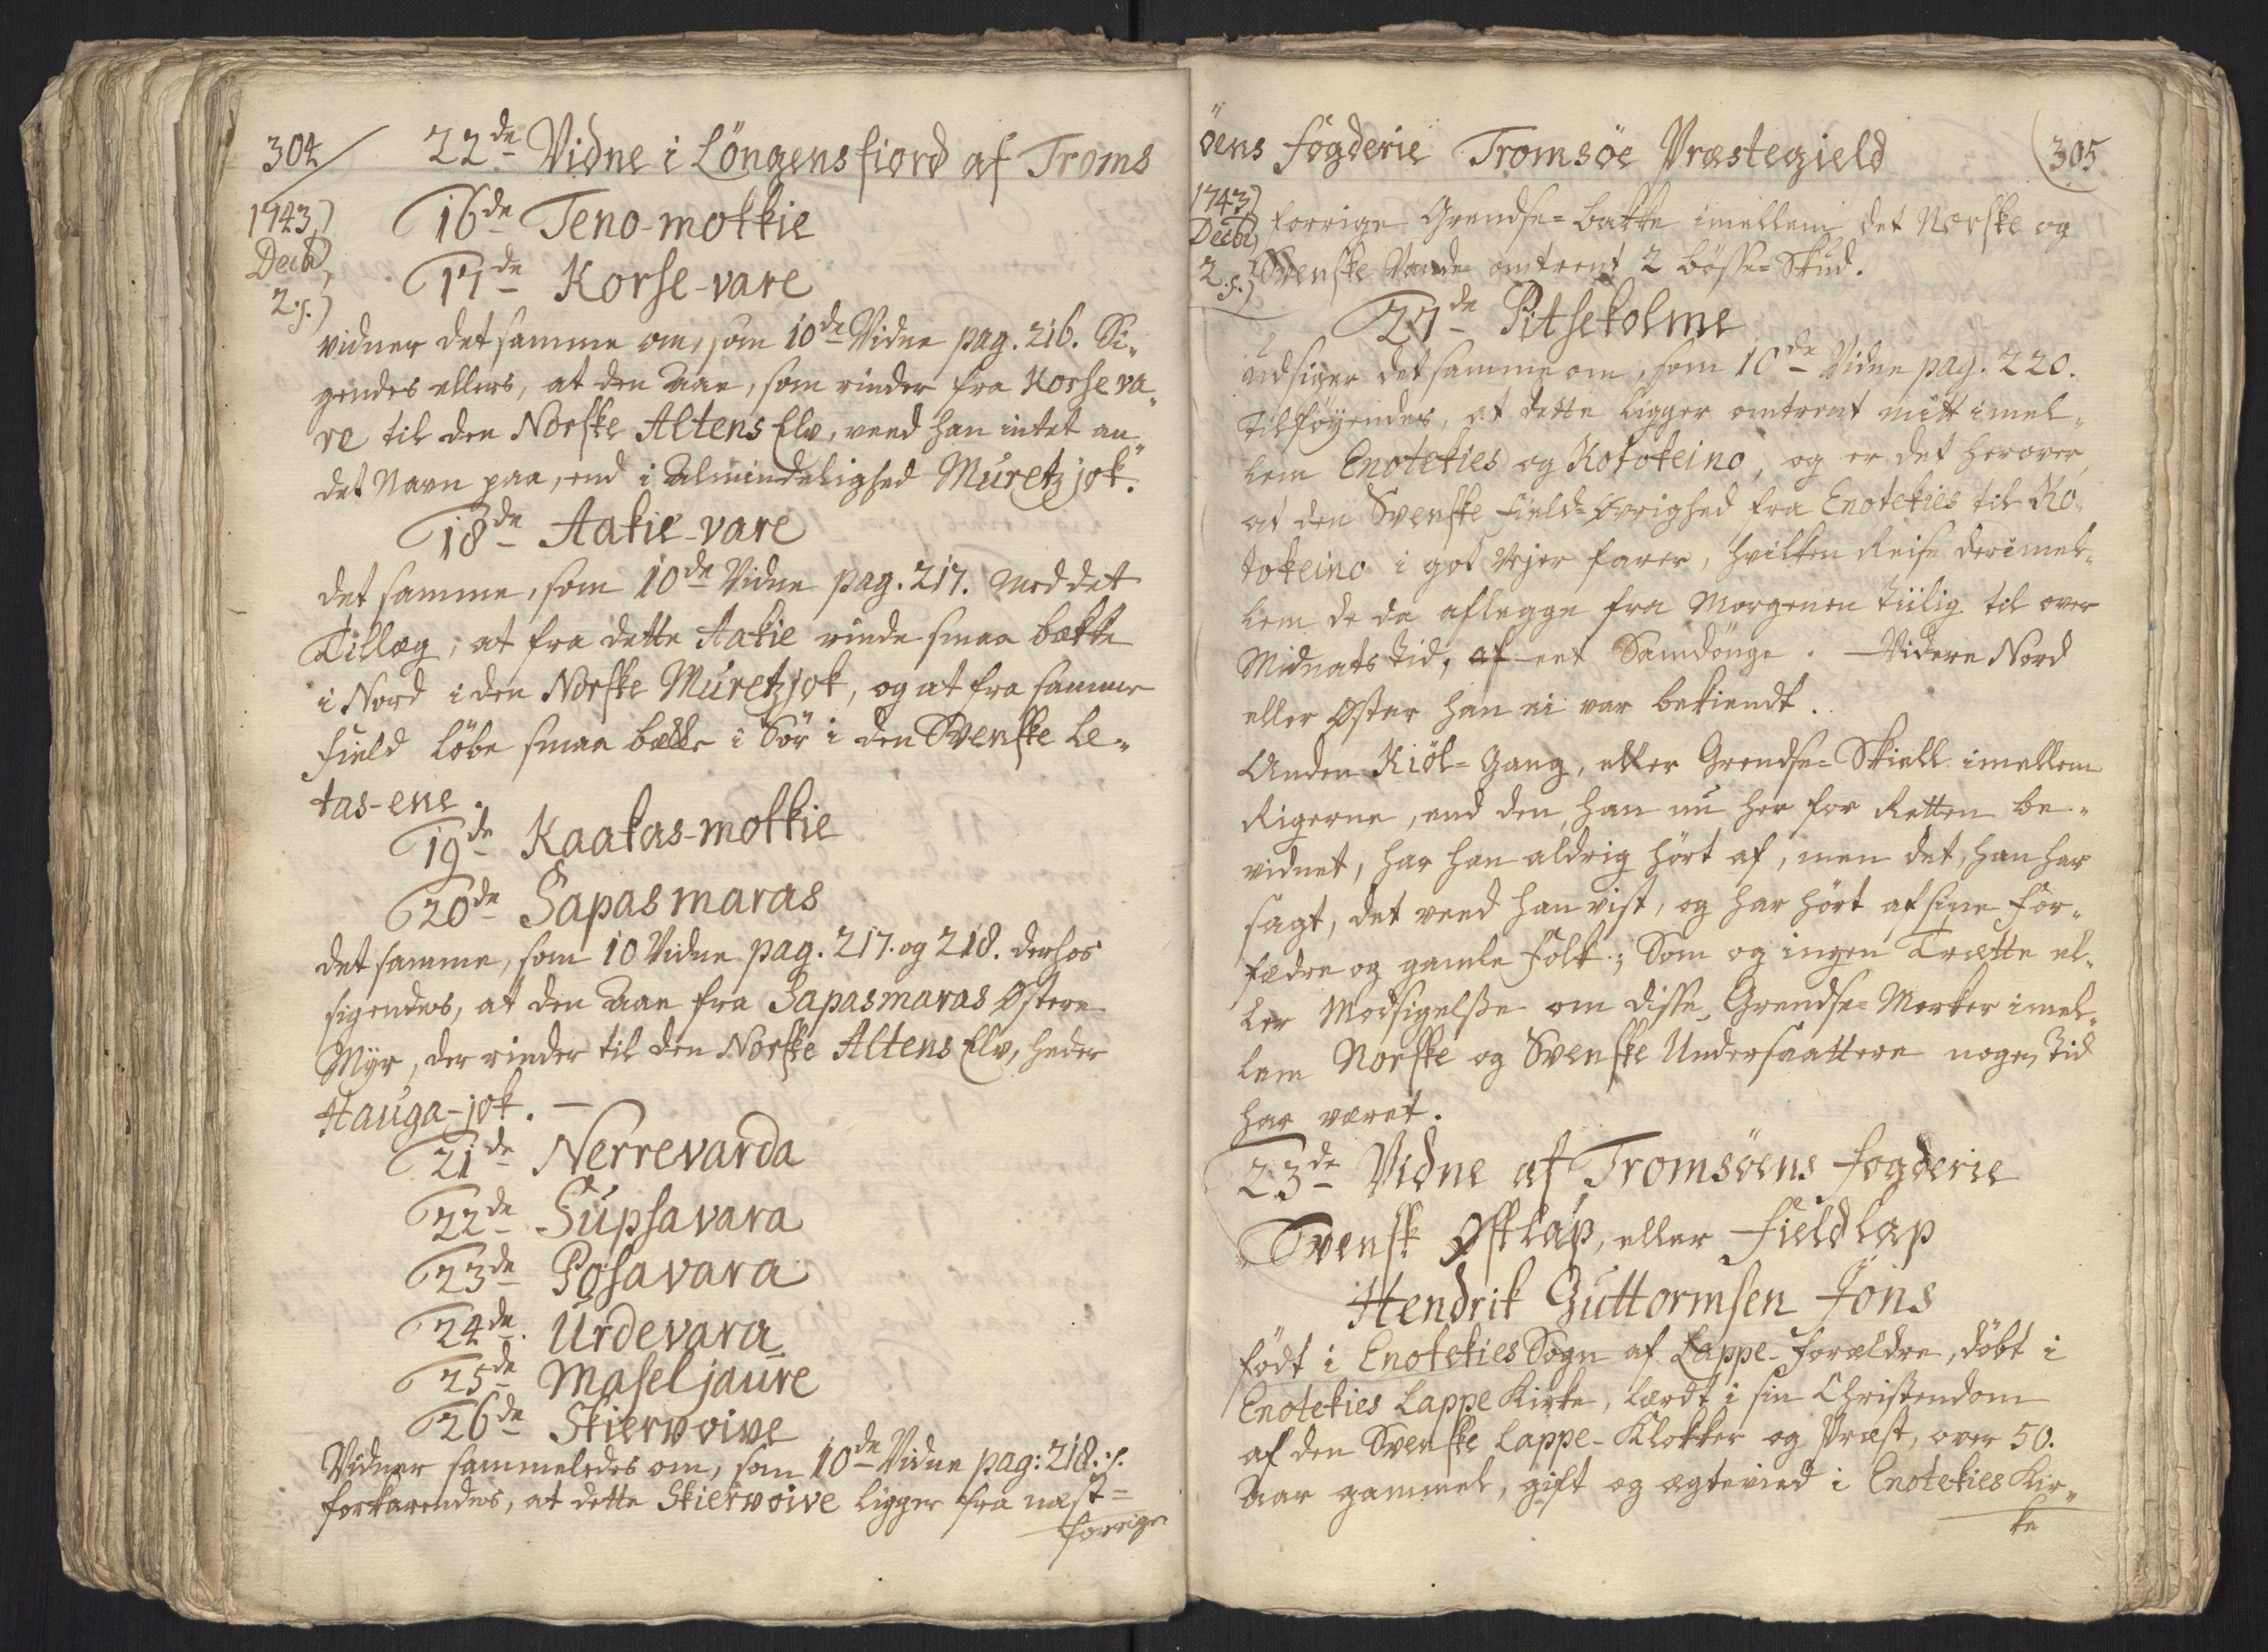 304
22de Vidne i Löngensfiord af Troms
1743
Decb
2. s.
16de Teno-mokkie
17de Korse-vare
vidner det samme om, som 10de Vidne pag. 216. Si-
gendes ellers, at den Aae, som rinder fra Korseva-
re til den Norske Altens Elv, veed han intet an-
det Navn paa, end i Almindelighed Muretzjok.
18de Aakie-vare
det samme, som 10de Vidne pag. 217. med det
Tillæg, at fra dette Aakie rinde smaa bække
i Nord i den Norske Muretzjok, og at fra samme
Field löbe smaa bække i Sör i den Svenske Le-
tas-ene.
19de Kaakas-mokkie
20de Sapasmaras
det samme, som 10 Vidne pag. 217. og 218. derhos
sigendes, at den Aae fra Sapasmaras Östere
Myr, der rinder til den Norske Altens Elv, heder
Hauga-jok. —
21de Nerrevarda
22de Supsavara
23de Posavara
24de Urdevara
25de Maseljaure
26de Skiervoive
Vidner sammeledes om, som 10de Vidne pag: 218. s.
forkarendes, at dette Skiervoive ligger fra næst=
forrige
öens Fogderie Tromsöe Præstegield
305
1743
Decb
2. s.
forrige Grendse=bakke imellem det Norske og
Svenske Vande omtrent 2 bösse=Skud.
27de Pitsekolme
udsiger det samme om, som 10de Vidne pag. 220.
tilföyendes, at dette ligger omtrent mitt imel-
lem Enotekies og Kotokeino, og er det herover,
at den Svenske Field=Övrighed fra Enotekies til Ko-
tokeino i got Vejer farer, hvilken Reise derimel-
lem de da aflegge fra Morgenen tiilig til over
Midnats Tid, af eet Samdönge. Videre Nord
eller Öster han ei var bekiendt.
Anden Kiöl=Gang, eller Grendse=Skiell imellem
Rigerne, end den, han nu her for Retten be-
vidnet, har han aldrig hört af, men det, han har
sagt, det veed han vist, og har hört af sine For-
fædre og gamle Folk; Som og ingen Trætte el-
ler Modsigelse om disse Grendse=Merker imel-
lem Norske og Svenske Undersaattere nogen Tid
har været.
23de Vidne af Tromsöens Fogderie
Svensk ÖstLap, eller FieldLap
Hendrik Guttormsen Jöns
födt i Enotekies Sogn af Lappe-Forældre, döbt i
Enotekies Lappe Kirke, lærdt i sin Christendom
af den Svenske Lappe-Klokker og Præst, over 50.
Aar gammel, gift og ægtevied i Enotekies Kir-
ke